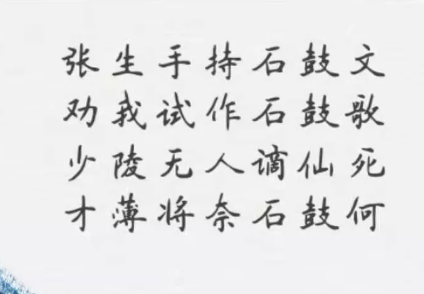 张生手持石鼓文
劝我试作石鼓歌
少陵无人谪仙死
才薄将奈石鼓何